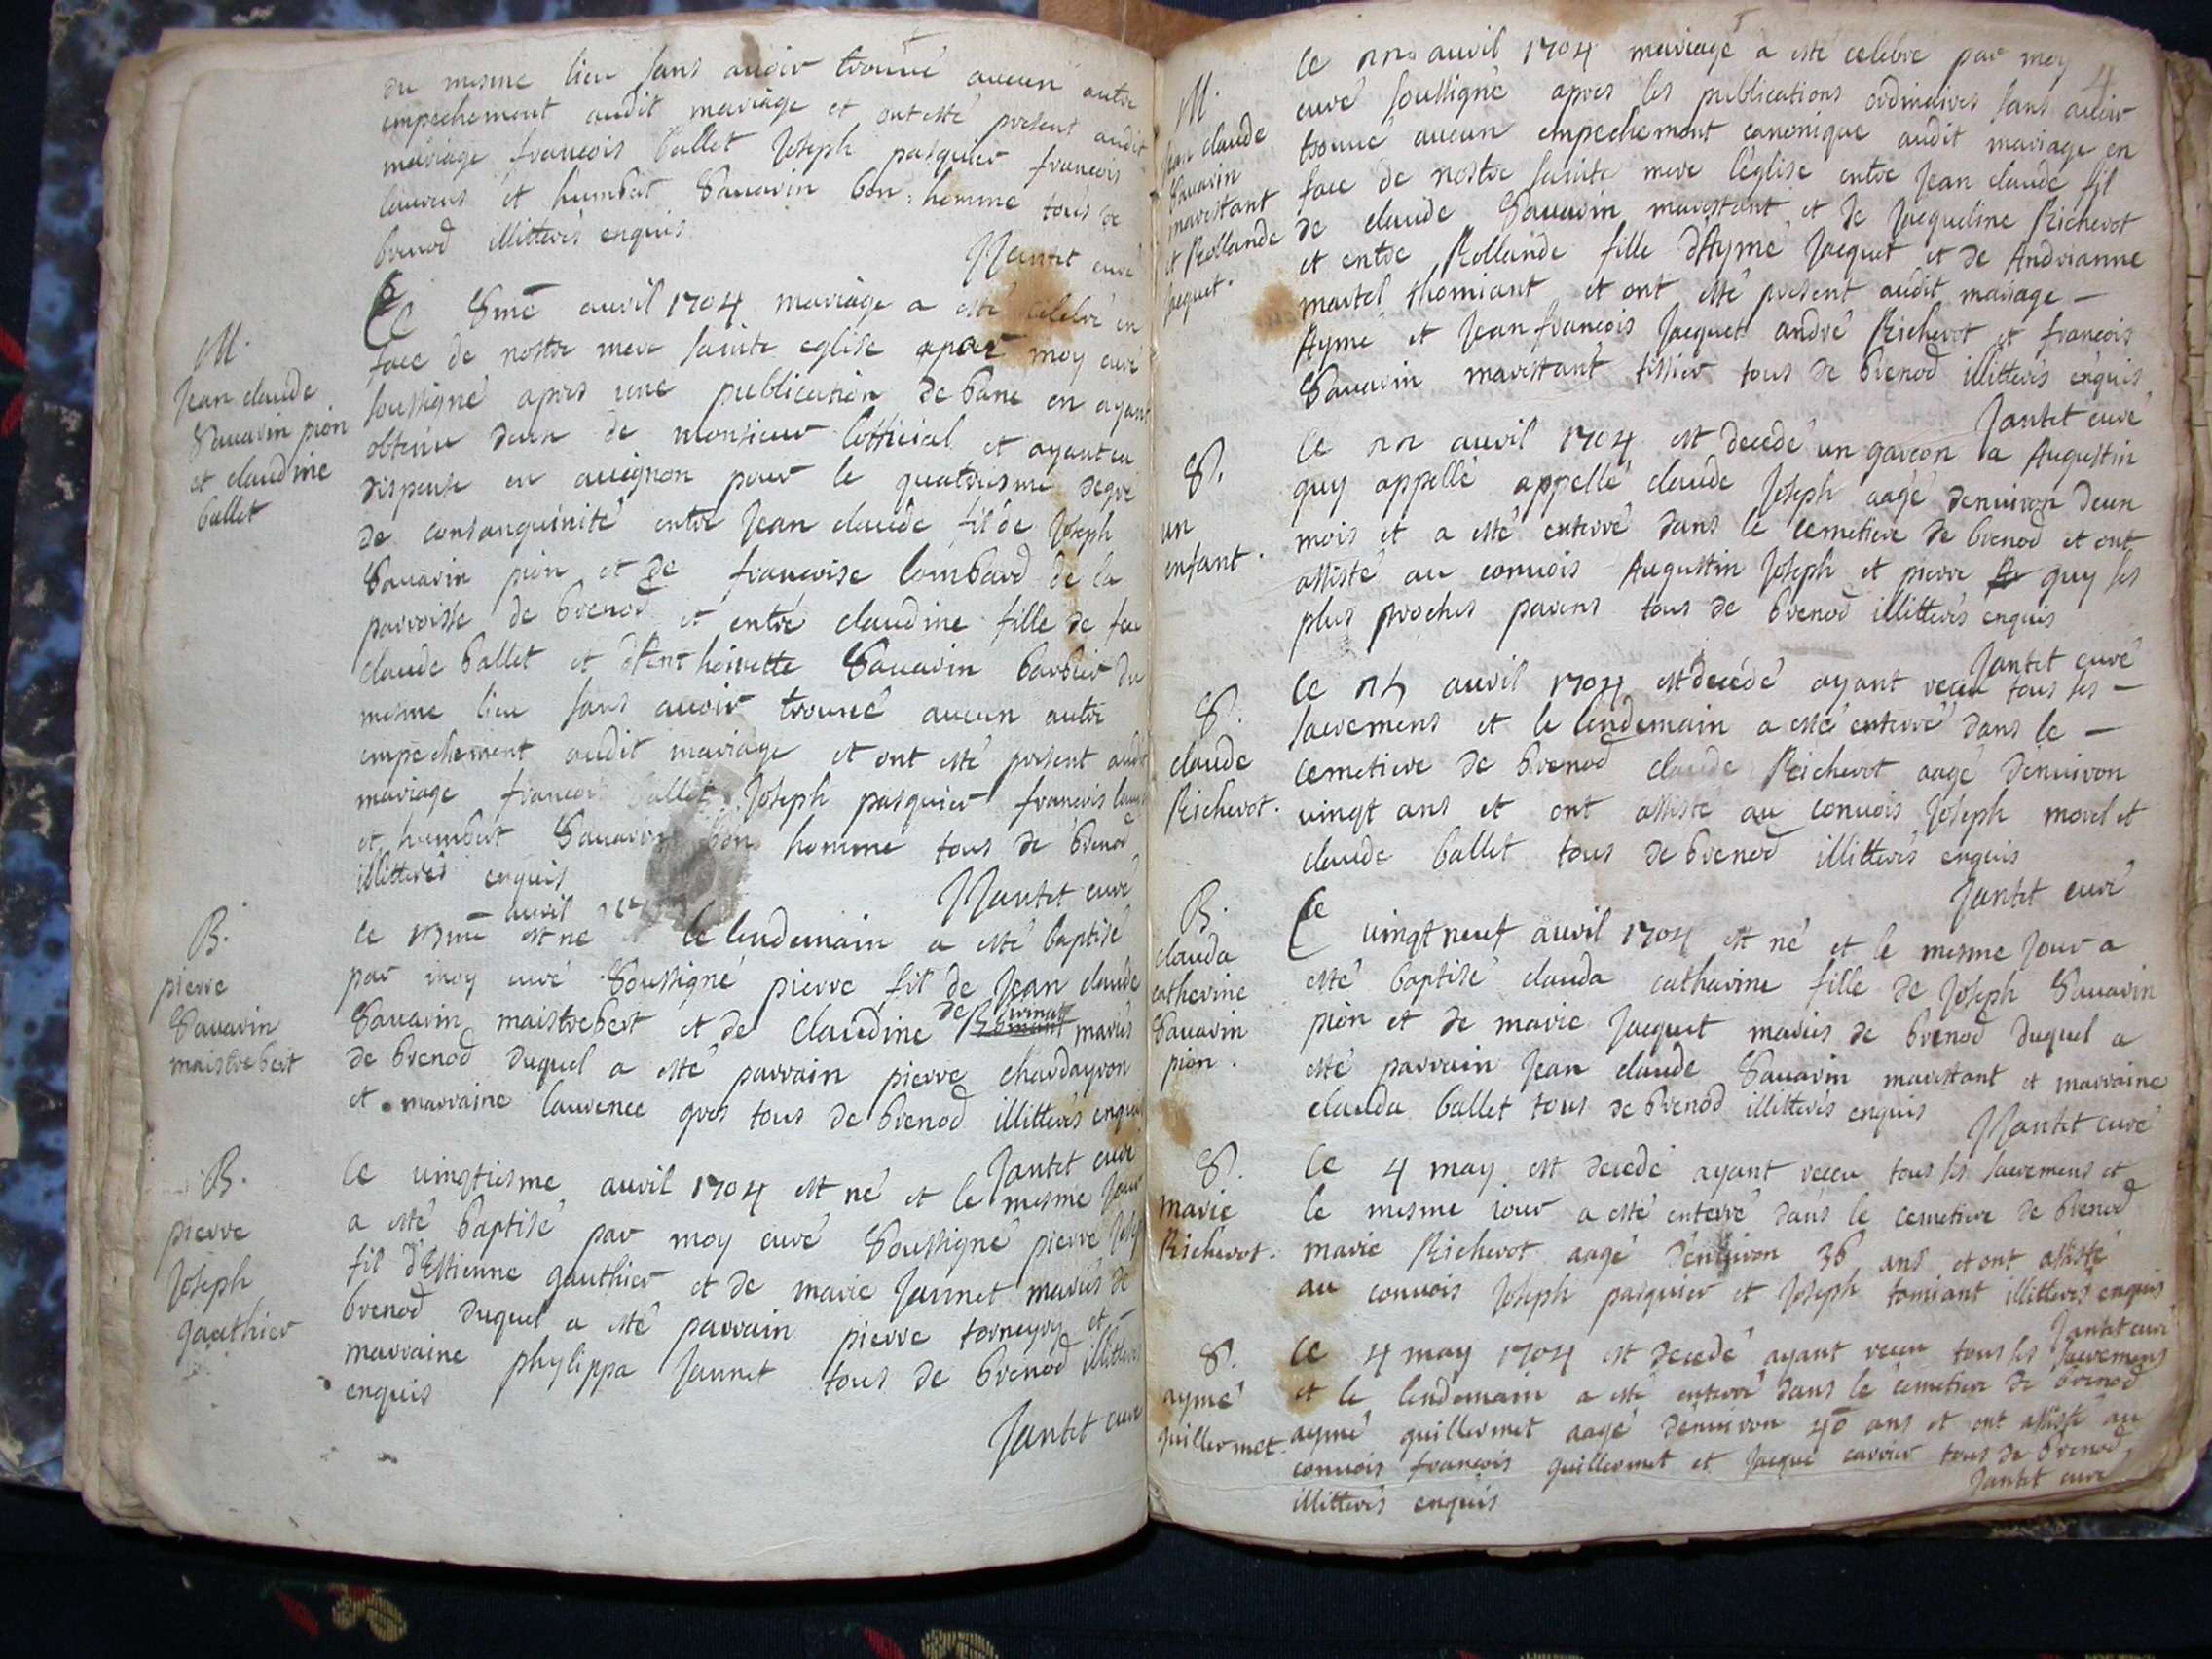 du mesme lieu sans auoir trouué aucun autre
empechement audit mariage et ont esté present audit
mariage francois ballet Joseph pasquier francois
laurens et humbert Sauarin bon : homme tous de
brenod illitterés enquis
Jantet curé
M.
Jean claude
Sauarin pion
et claudine
ballet
Ce 8me auril 1704 mariage a esté celebré en
face de nostre mere sainte eglise apar moy curé
soussigné apres une publication de banc en ayant
obtenu dun de monsieur lofficial et ayant eu
dispense en auignon pour le quatriesme degré
de consanguinité entre Jean claude fil de Joseph
Sauarin pion et de francoise lombard de la
parroisse de brenod et entre claudine fille de feu
claude ballet et dAnthoinette Sauarin barbier du
mesme lieu sans auoir trouué aucun autre
empechement audit mariage et ont esté present audit
mariage francois ballet Joseph pasquier francois laurens
et humbert Sauarin bon homme tous de brenod
illitterés enquis
Jantet curé
B.
pierre
Sauarin
maistrebert
auril
ce est né le lendemain a esté baptisé
par moy curé Soussigné pierre fil de Jean claude
Sauarin maistrebert et de Claudine de mariés
de brenod duquel a esté parrain pierre chardayron
et marraine laurence gros tous de brenod illitterés enquis
Jantet curé
B.
pierre
Joseph
gauthier
Ce uingtiesme auril 1704 est né et le mesme Jour
a esté baptisé par moy curé Soussigné pierre Joseph
fil d'Estienne gauthier et de marie Jannet mariés de
brenod duquel a esté parrain pierre torneyry et
marraine phylippa Jannet tous de brenod illitterés
enquis
Jantet curé
M.
Jean claude
Sauarin
marestant
et Rollande
Jaquet.
Ce auril 1704 mariage a esté celebré par moy
curé soussigné apres les publications ordinaires sans auoir
trouué aucun empechement canonique audit mariage en
face de nostre sainte mere l'eglise entre Jean claude fil
de claude Sauarin marestant et de Jacqueline Richerot
et entre Rollande fille dAymé Jacquet et de Andrianne
martel thomiant et ont esté present audit mariage —
Aymé et Jean francois Jacquet andré Richerot et francois
Sauarin marestant tissier tous de brenod illitterés enquis
Jantet curé
S.
un
enfant.
Ce 22 auril 1704 est decedé un garcon a Augustin
guy appellé appellé claude Joseph aagé denuiron deun
mois et a esté enterré dans le cemetiere de brenod et ont
assisté au conuois Augustin Joseph et pierre guy les
plus proches parens tous de brenod illitterés enquis
Jantet curé
S.
claude
Richerot.
Ce auril 1704 est decedé ayant receu tous les —
sacremens et le lendemain a esté enterré dans le —
cemetiere de brenod claude Richerot aagé denuiron
uingt ans et ont assisté au conuois Joseph morel et
claude ballet tous de brenod illitterés enquis
Jantet curé
B.
clauda
catherine
Sauarin
pion.
Ce uingt neuf auril 1704 est né et le mesme Jour a
esté baptisé clauda catharine fille de Joseph Sauarin
pion et de marie Jacquet mariés de brenod duquel a
esté parrain Jean claude Sauarin marestant et marraine
clauda ballet tous de brenod illitterés enquis
Jantet curé
S.
marie
Richerot.
Ce 4 may est decedé ayant receu tous les sacremens et
le mesme iour a esté enterré dans le cemetiere de brenod
marie Richerot aagé denuiron 36 ans et ont assisté
au conuois Joseph pasquier et Joseph tomiant illitterés enquis
Jantet curé
S.
aymé
guillermet
Ce 4 may 1704 est decedé ayant receu tous les sacremens
et le lendemain a esté enterré dans le cemetiere de brenod
aymé guillermet aagé denuiron 40 ans et ont assisté au
conuois francois guillermet et Jacque carrier tous de brenod
illitterés enquis
Jantet curé